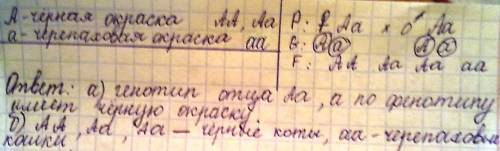 А-чёрная окраска АА, Аа
а-черепаховая окраска аа
Р: ♀ Аа × ♂ Аа
G: А а А а
F: АА Аа Аа аа
Ответ: а) генотип отца Аа, а по фенотипу
имеет чёрную окраску
б) АА, Аа, Аа — чёрные коты, аа - черепаховые
кошки